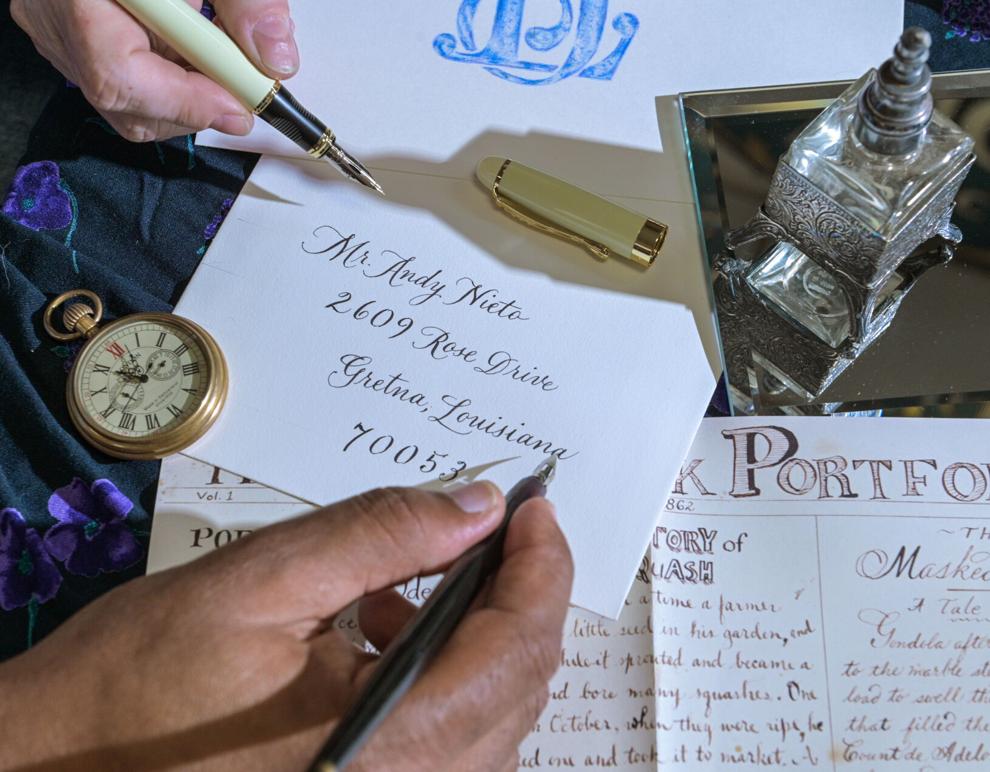 Mr. Andy Nieto
2609 Rose Drive
Gretna, Louisiana
70053
Vol. 1
K PORTFO
862
TORY of
QUASH
a time a farmer
little seed in his garden, and
while it sprouted and became a
nd bore many squashes. One
October, when they were ripe, he
ed one and took it to market. A
~ TH
Masked
A Tale
Gondola afte
to the marble ste
load to swell th
that filled the
Count de Adelo